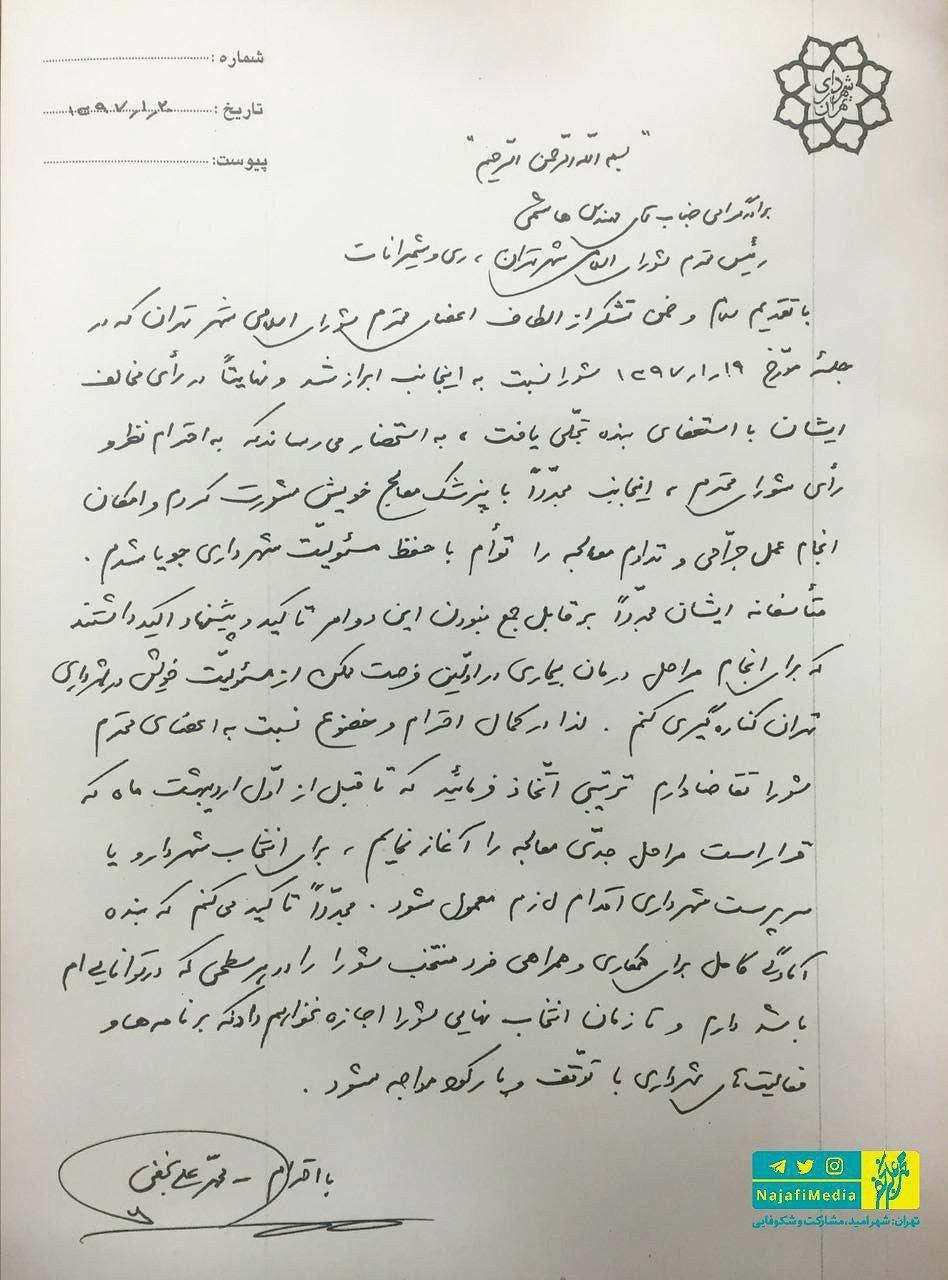 شماره :
تاریخ : ۱۳۹۷/۱/۲۰
پیوست:
شهرداری تهران
"بسم الله الرّحمن الرّحیم"
برادر گرامی جناب آقای مهندس هاشمی
رئیس محترم شورای اسلامی شهر تهران، ری و شمیرانات
با تقدیم سلام و ضمن تشکر از الطاف اعضای محترم شورای اسلامی شهر تهران که در
جلسهٔ مورّخ ۱۳۹۷/۱/۱۹ شورا نسبت به اینجانب ابراز شد و نهایتاً در رأی مخالف
ایشان با استعفای بنده تجلّی یافت، به استحضار می رساند که به احترام نظر و
رأی شورای محترم، اینجانب مجدّداً با پزشک معالج خویش مشورت کردم و امکان
انجام عمل جرّاحی و تداوم معالجه را توأم با حفظ مسئولیّت شهرداری جویا شدم.
متأسفانه ایشان مجدّداً بر قابل جمع نبودن این دو امر تاکید و پیشنهاد اکید داشتند
که برای انجام مراحل درمان بیماری در اوّلین فرصت ممکن از مسئولیّت خویش در شهرداری
تهران کناره گیری کنم. لذا در کمال احترام و خضوع نسبت به اعضای محترم
شورا تقاضا دارم ترتیبی اتّخاذ فرمائید که تا قبل از اوّل اردیبهشت ماه که
قرار است مراحل جدّی معالجه را آغاز نمایم، برای انتخاب شهردار و یا
سرپرست شهرداری اقدام لازم معمول شود. مجدّداً تاکید می کنم که بنده
آمادگی کامل برای همکاری و همراهی فرد منتخب شورا را در هر سطحی که در توانایی ام
باشد دارم و تا زمان انتخاب نهایی شورا اجازه نخواهم داد که برنامه ها و
فعالیت های شهرداری با توقّف و یا رکود مواجه شود.
با احترام - محمّد علی نجفی
NajafiMedia
تهران: شهر امید، مشارکت و شکوفایی